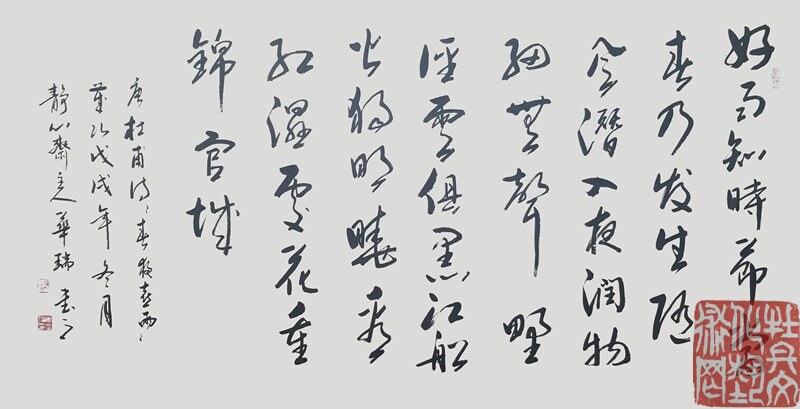 好雨知時節當
春乃发生随
風潛入夜潤物
細無聲野
徑雲俱黑江船
火獨明曉看
紅濕處花重
錦官城
唐杜甫诗春夜喜雨
歲次戊戌年冬月
靜心齋主人華瑞書之